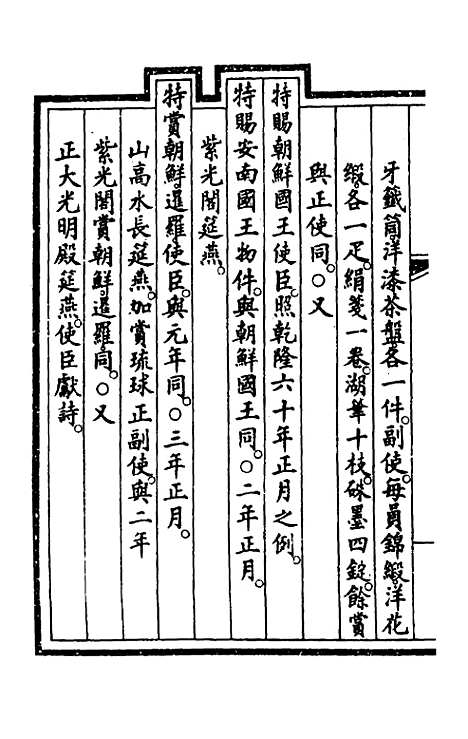 牙籤筒洋漆茶盤各一件。副使。每員錦緞洋花
緞。各一疋。絹箋一卷。湖筆十枝。硃墨四錠。餘賞
與正使同。○又
特賜朝鮮國王使臣。照乾隆六十年正月之例。
特賜安南國王物件。與朝鮮國王同。○二年正月。
紫光閣筵燕。
特賞朝鮮暹羅使臣。與元年同。○三年正月。
山高水長筵燕。加賞琉球正副使。與二年
紫光閣賞朝鮮暹羅同。○又
正大光明殿筵燕。使臣獻詩。